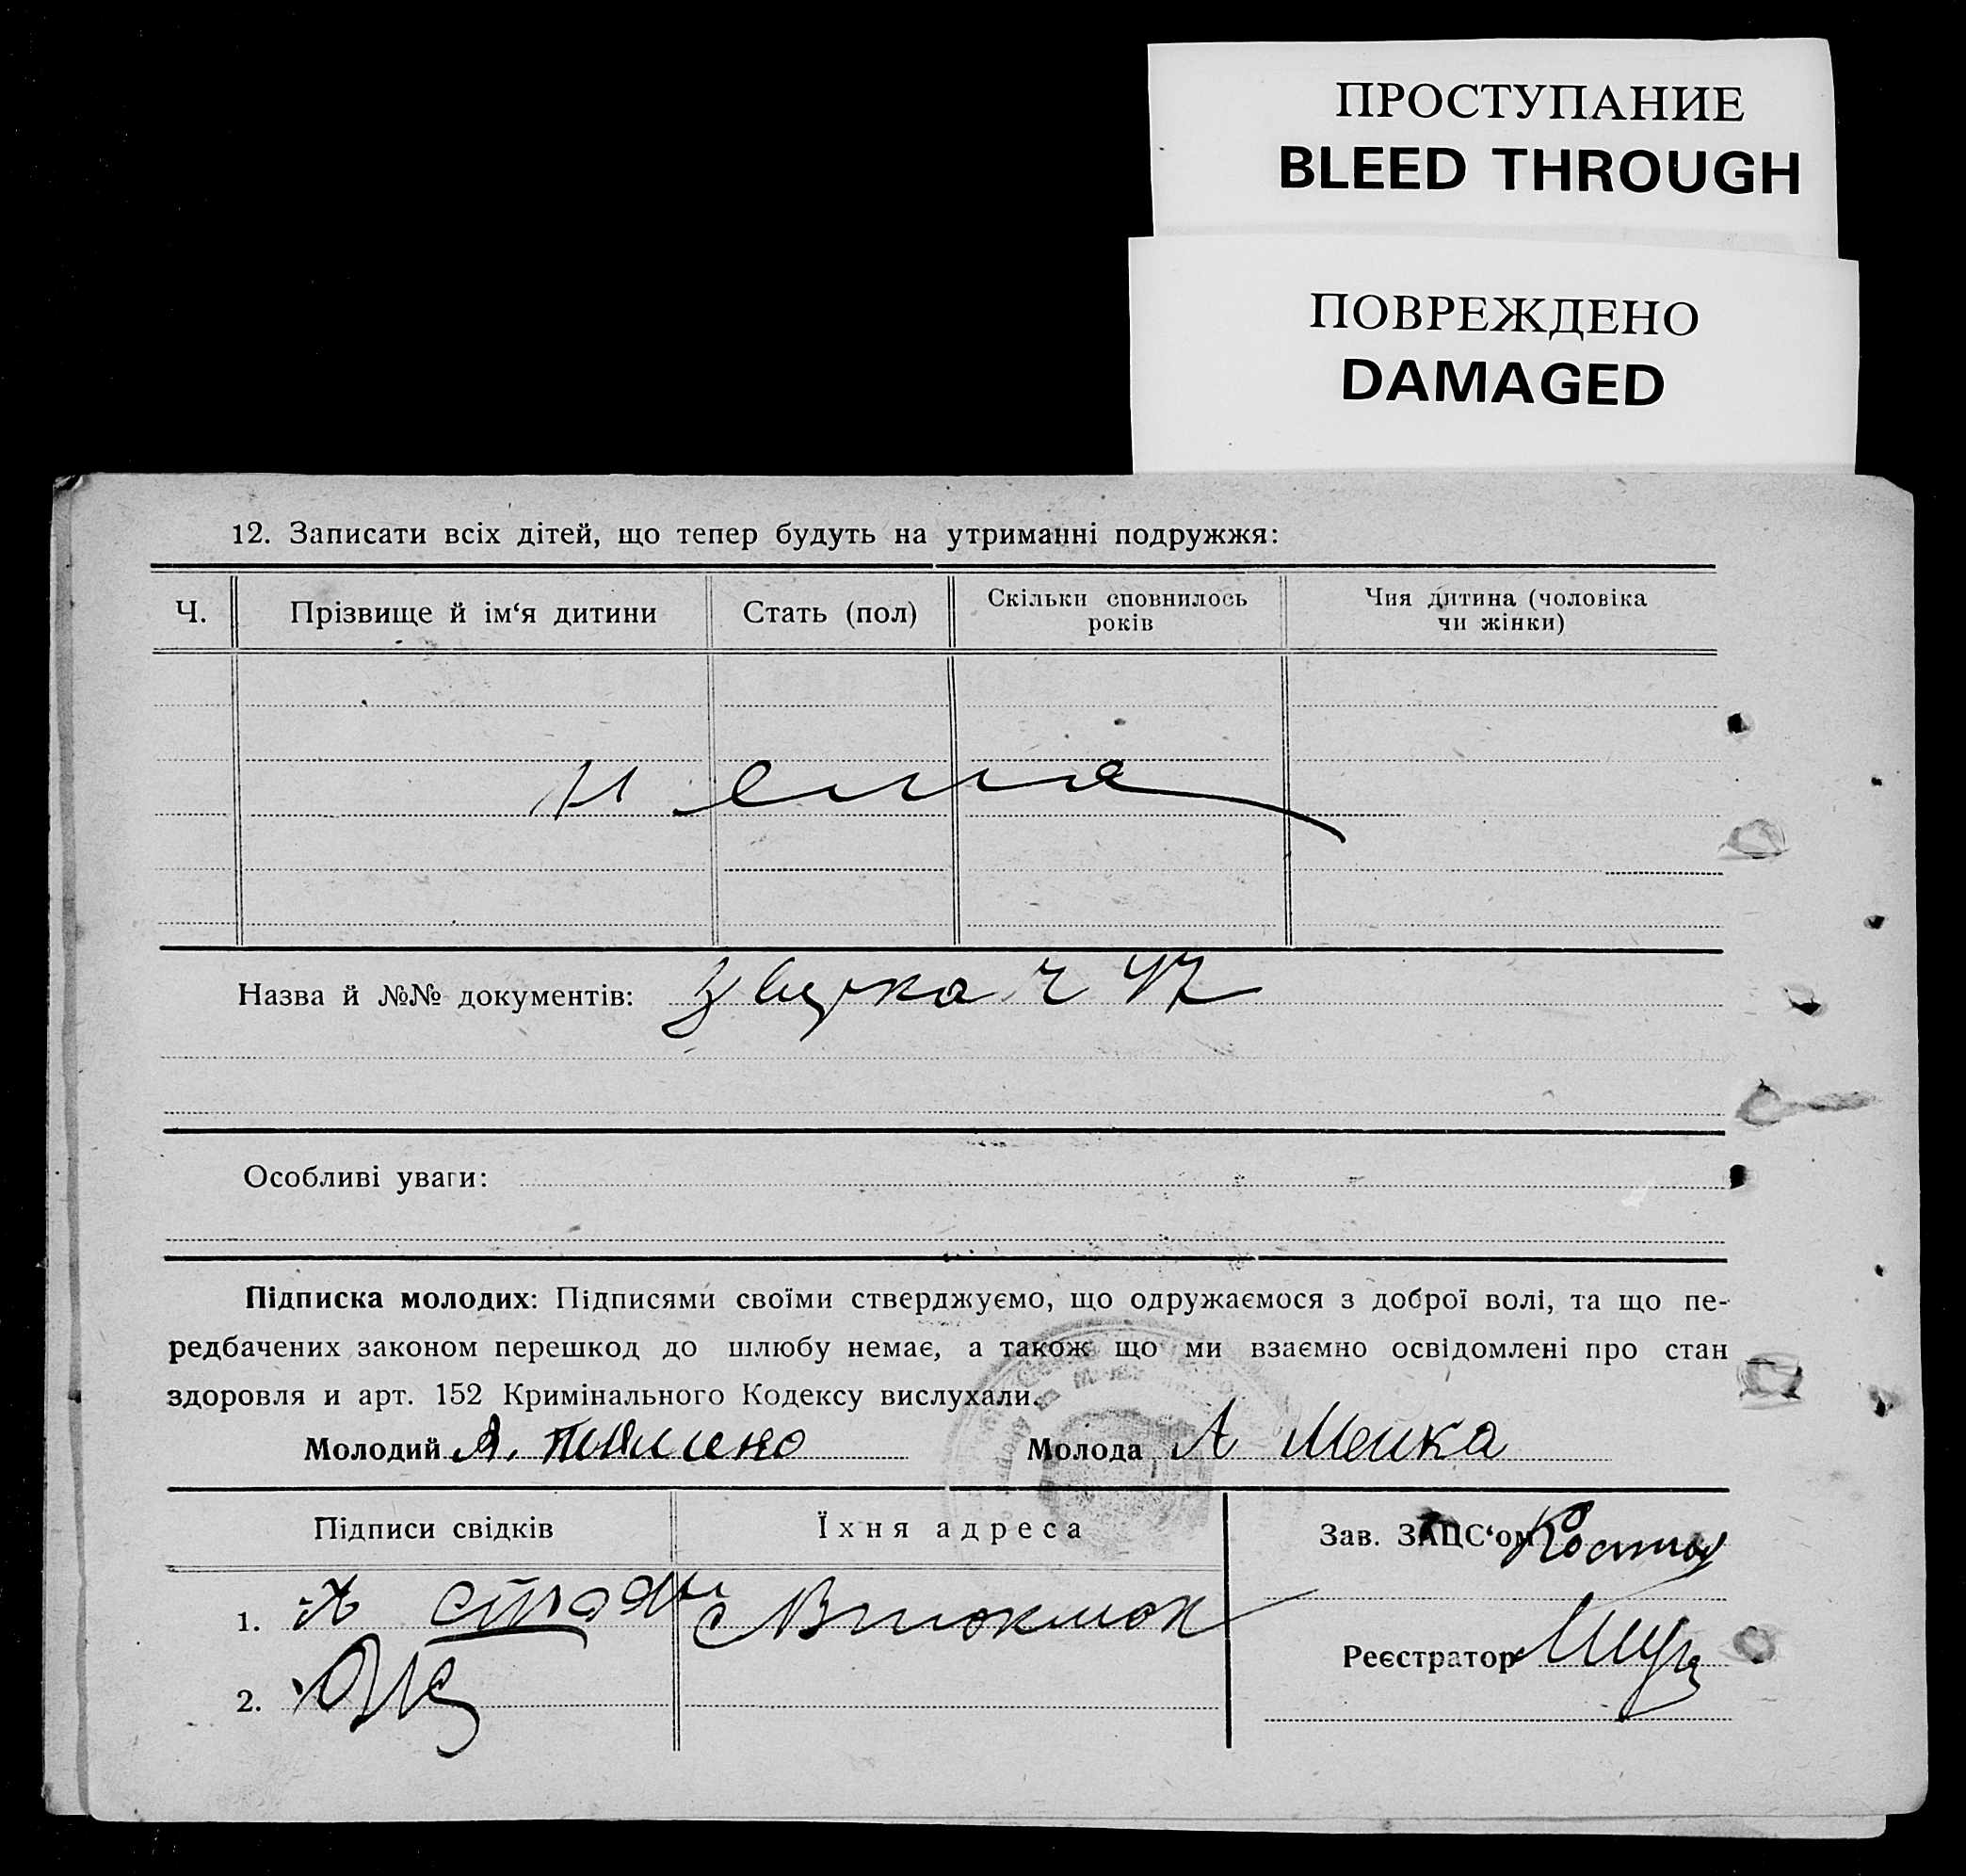 ПРОСТУПАНИЕ
BLEED THROUGH
ПОВРЕЖДЕНО
DAMAGED
12. Записати всіх дітей, що тепер будуть на утриманні подружжя:
Ч. Прізвище й ім‘я дитини Стать (пол) Скільки сповнилось років Чия дитина (чоловіка чи жінки)
Нема
Назва й №№ документів: ч 47
Особливі уваги:
Підписка молодих: Підписями своїми стверджуємо, що одружаємося з доброї волі, та що пе-
редбачених законом перешкод до шлюбу немає, а також що ми взаємно освідомлені про стан
здоровля и арт. 152 Кримінального Кодексу вислухали.
Молодий Молода А
Підписи свідків Їхня адреса Зав. ЗАЦС‘ом
1.
Реєстратор
2.